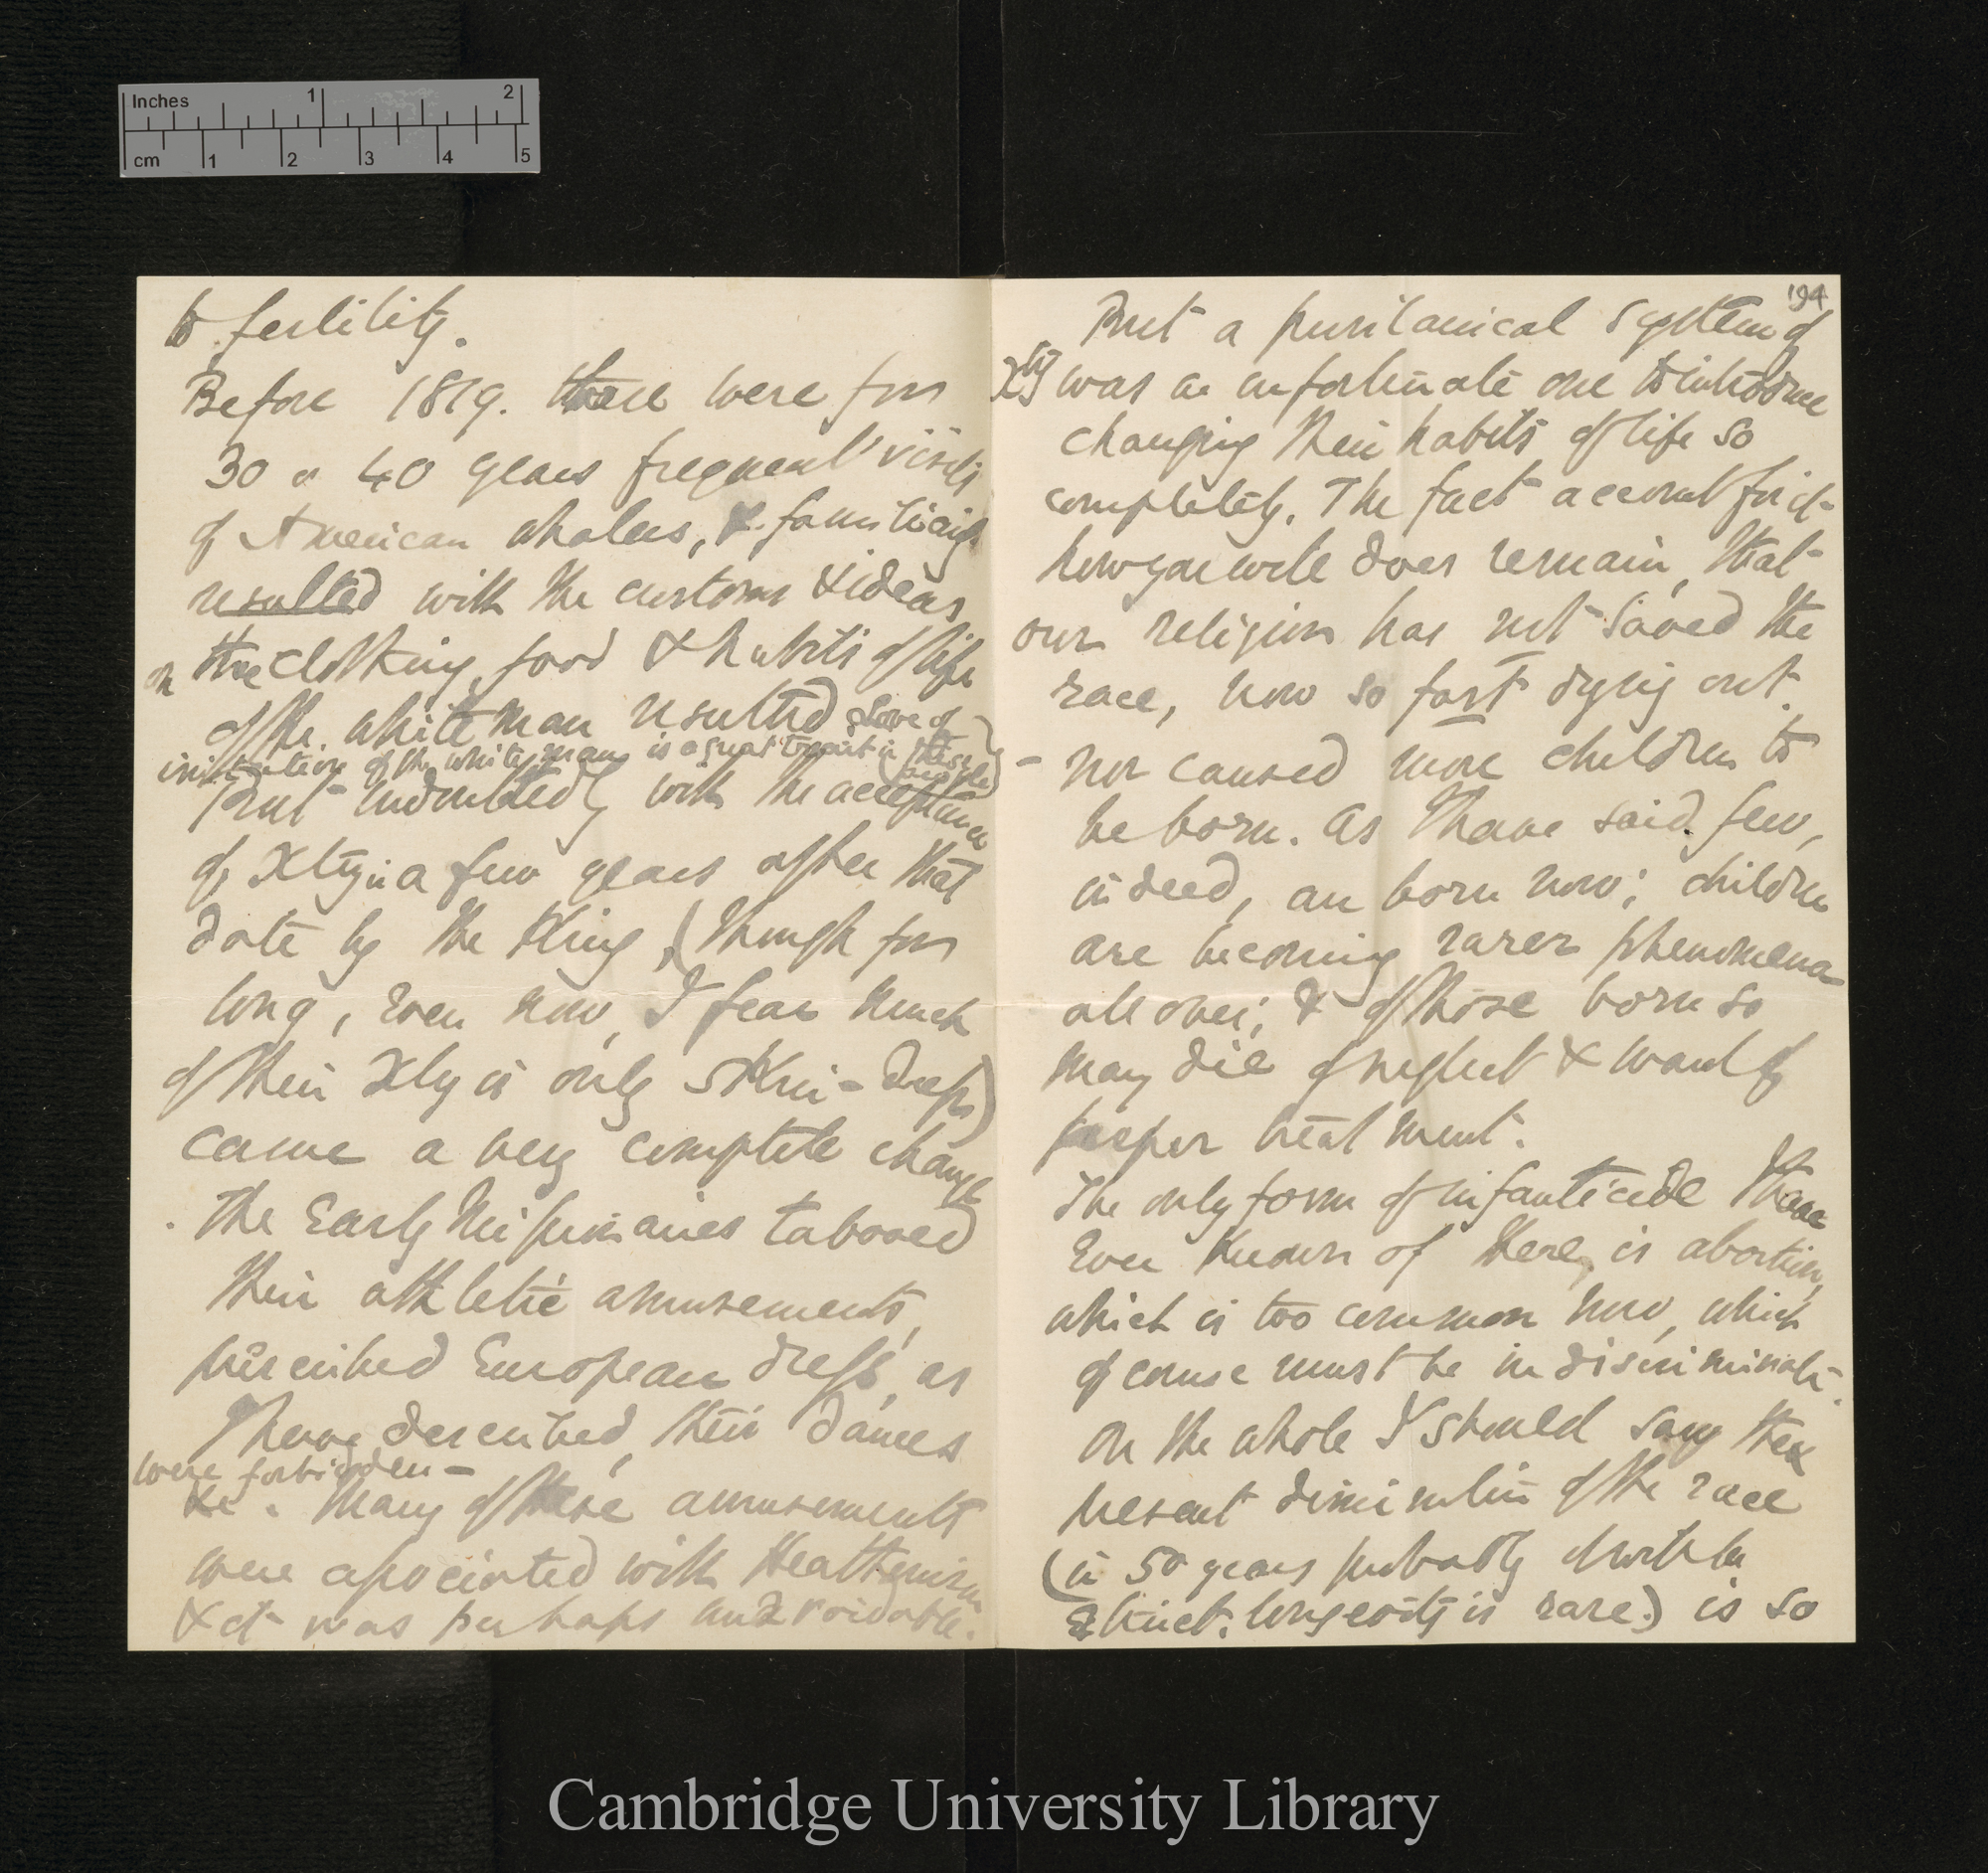 Inches 1 2
cm 1 2 3 4 5
to fertility.
Before 1819. there were for
30 or 40 years frequent visits
of American whalers, & familiarity
resulted with the customs & ideas
on the clothing, food & habits of life
of the white man resulted (love of
imitation of the white man is a great trait in these people)
But undoubtedly with the acceptance
of Xty in a few years after that
date by the King, (though for
long, even now, I fear much
of their Xty is only skin-deep)
came a very complete change
. The Early Missionaries tabooed
their athletic amusements,
prescribed European dress, as
I have described, their dances
were forbidden –
&c. Many of these amusements
were associated with Heathenism
& it was perhaps unavoidable.
194
But a puritanical system of
Xty was an unfortunate one to introduce
changing their habits of life so
completely. The fact account for it
how you will does remain, that
our religion has not saved the
race, now so fast dying out.
– nor caused more children to
be born. As I have said few,
indeed, are born now; children
are becoming rarer phenomena
all over; & of those born so
many die of neglect & want of
proper treatment.
The only form of infanticide I have
ever known of here, is abortion,
which is too common now, which
of course must be indiscriminate.
On the whole I should say the
present diminution of the race
(in 50 years probably it will be
extinct. longevity is rare.) is so
Cambridge University Library